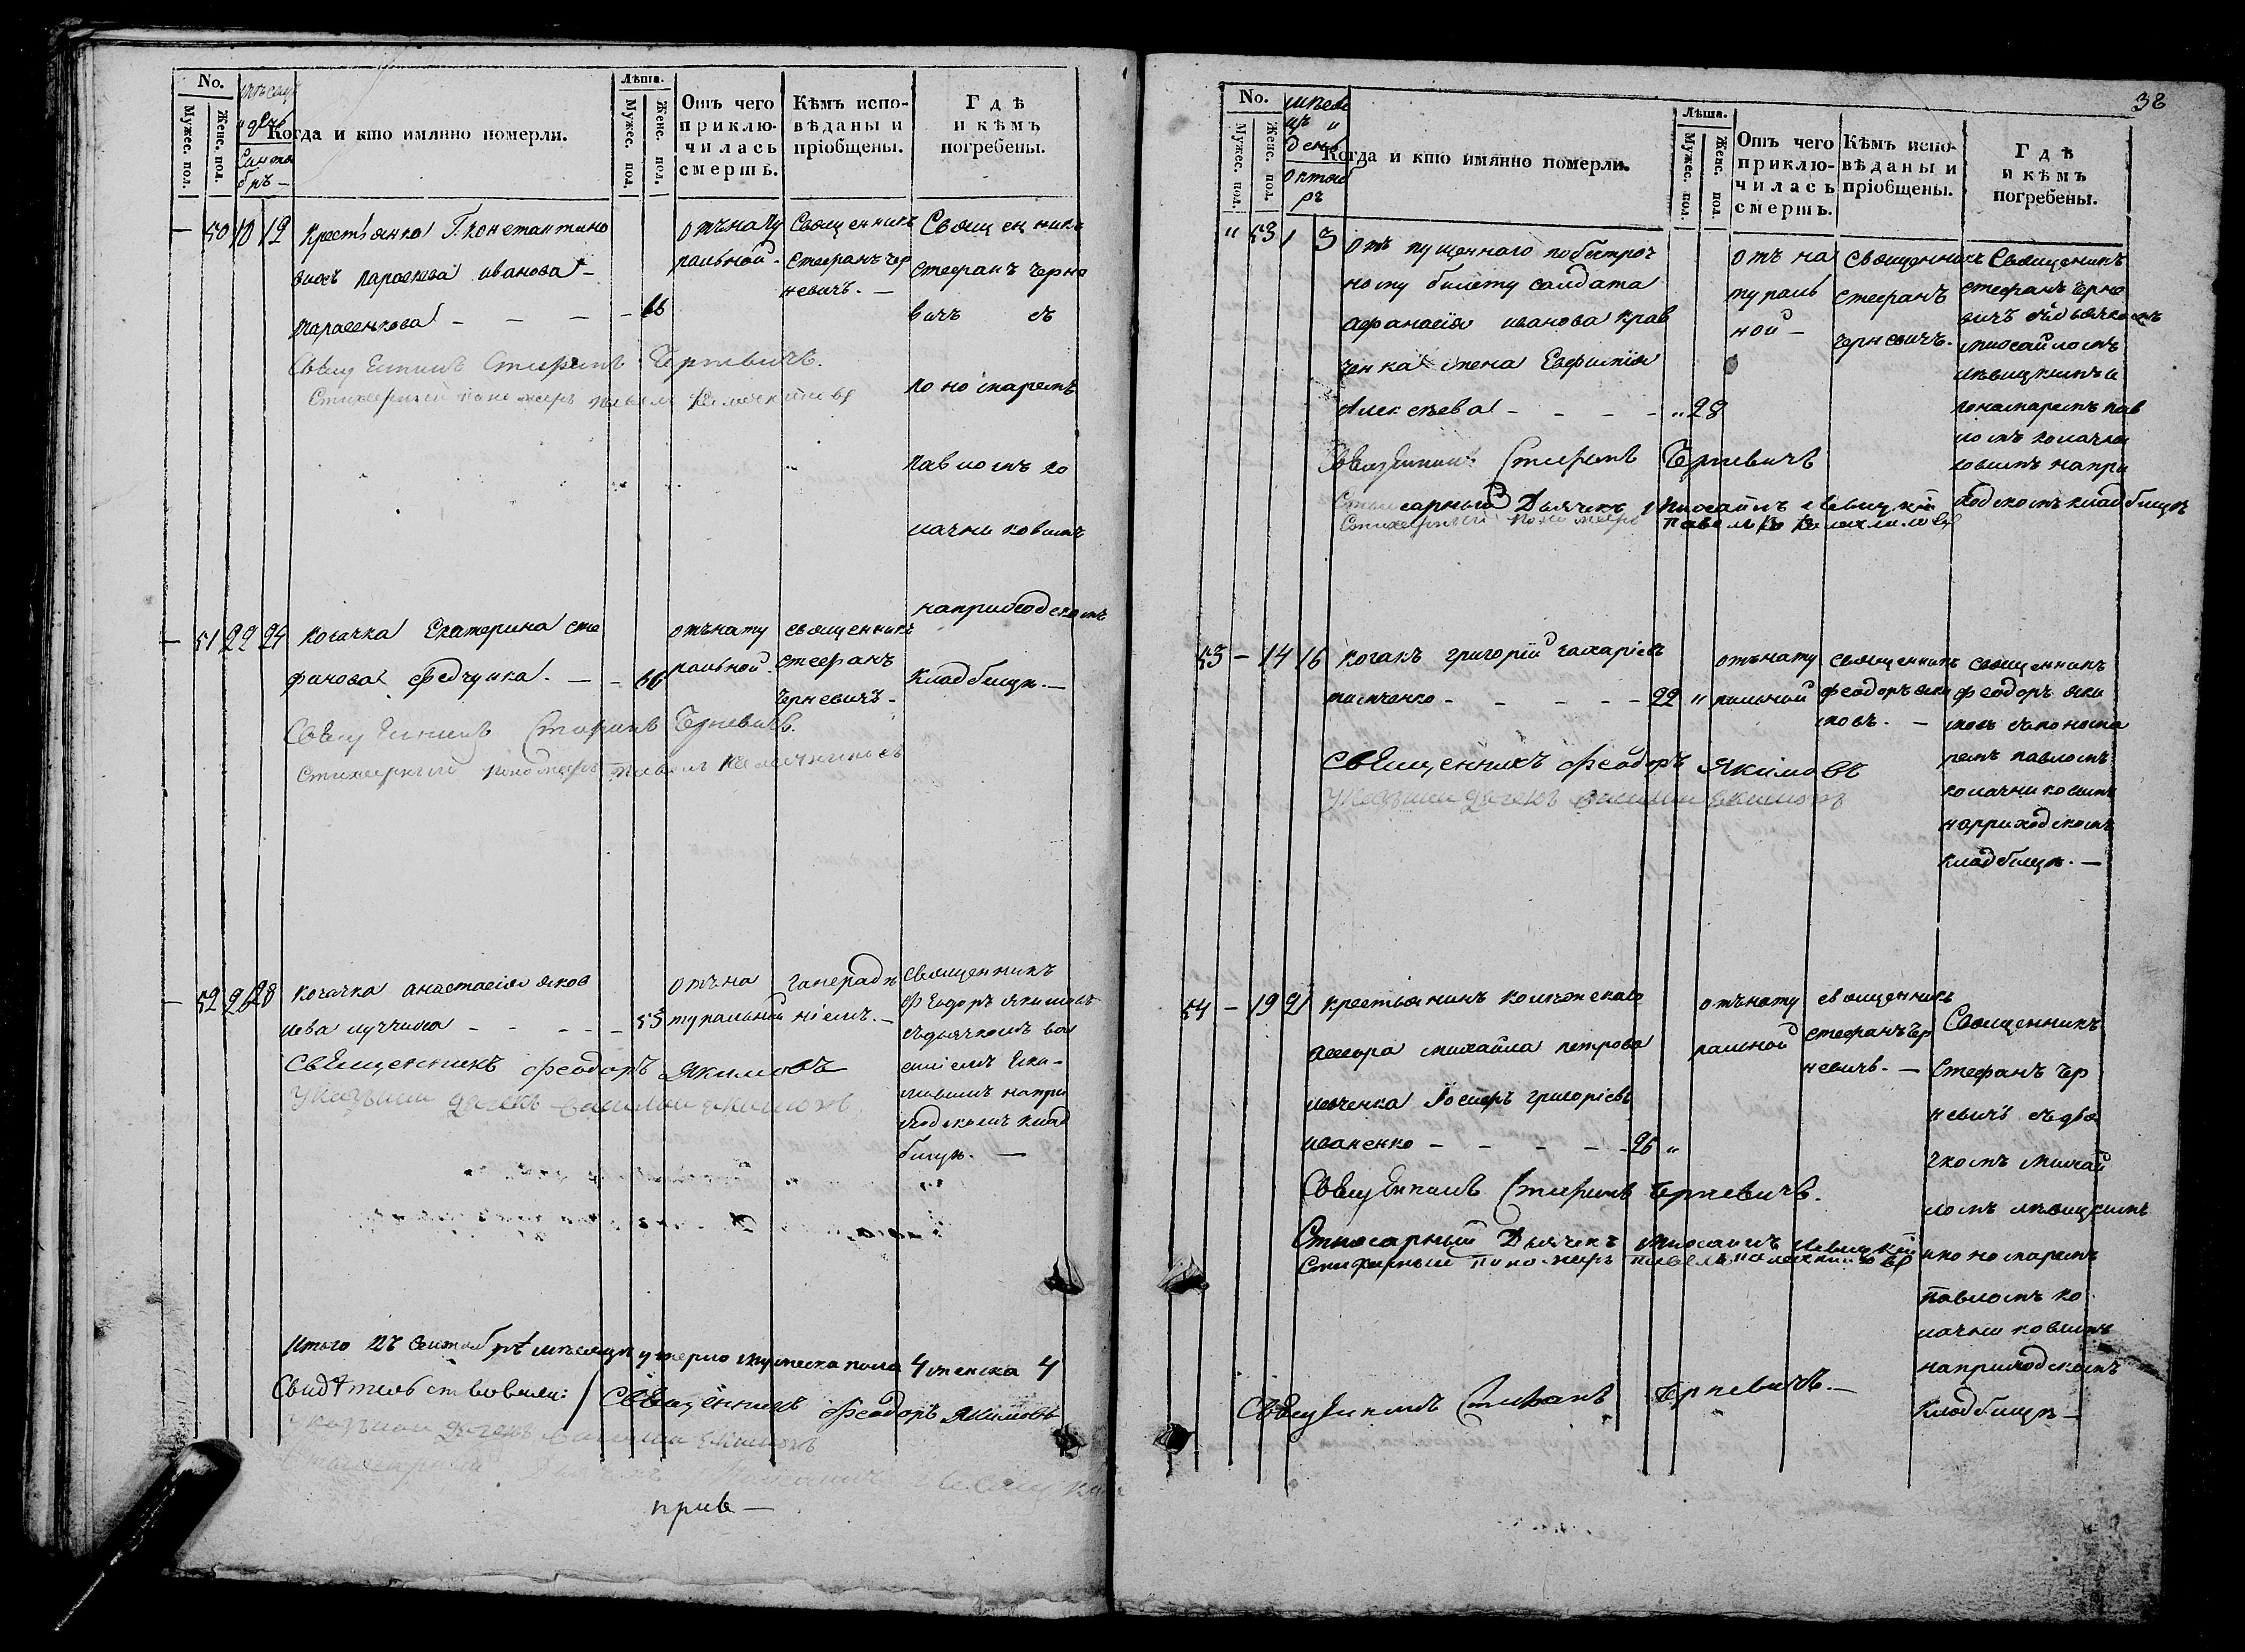 No.
Мужес. пол.
Женс. пол.
Когда и кто имянно померли.
Лѣта.
Мужес. пол.
Женс. пол.
Отъ чего приклю-
чилась
смерть.
Кѣмъ испо-
вѣданы и
пріобщены.
Гдѣ
и кѣмъ
погребены.
— 50 10 12 Крестьянка Г. Константино
вичъ Параскева Иванова
Тарасенкова — — — — 16
отъ нату
ральной.
Священникъ
Стефанъ Чер
невичъ. —
Священникъ
Стефанъ Черне
вичъ съ
пономаремъ
Павломъ Ко
лачниковимъ
на приходскомъ
кладбищѣ. —
Священникъ Стефанъ Черневичъ.
Стихарный пономарь Павелъ
— 51 22 24 Козачка Екатерина Сте
фанова Федчунка. — — 66
отъ нату
ральной.
священникъ
Стефанъ
Черневичъ —
Священникъ Стефанъ Черневичъ.
Стихарный пономарь Павелъ
— 52 26 28 Козачка Анастасія Яков
лева — — — — 53
отъ на
туральной
священникъ
Феодоръ Якимовъ
съ дьячкомъ Ва
силіемъ Яки-
мовимъ на при
ходскомъ клад
бищѣ. —
Священникъ Феодоръ Якимовъ
Указный дьячекъ Василий Якимовъ
Итого въ сентябрѣ мѣсяцѣ умерло мужеска пола 4 женска 4
Свидѣтельствовали: Священникъ Феодоръ Якимовъ
Указный дьячекъ Василий Якимовъ
Стихарный Дьячекъ
38
No.
Мужес. пол.
Женс. пол.
мѣся
цъ и
день
Октяб
рь
Когда и кто имянно померли.
Лѣта.
Мужес. пол.
Женс. пол.
Отъ чего
приклю-
чилась
смерть.
Кѣмъ испо-
вѣданы и
пріобщены.
Гдѣ
и кѣмъ
погребены.
" 53 1 3 Отпущенного по безсроч
ному билету солдата
Афанасія Иванова Крав
ченка жена Евфимія
Алексѣева — — — — " 28
отъ на
тураль
ной —
священникъ
Стефанъ
Черневичъ.
Священникъ
Стефанъ Черне
вичъ съ дьячкомъ
Михайломъ
Лѣвицкимъ и
пономаремъ Пав
ломъ Колачни
ковимъ на при
ходскомъ кладбищѣ
Священникъ Стефанъ Черневичъ
Стихарный Дьячекъ Михаилъ Левицкій
Стихарный пономарь Павелъ
53 — 14 16 Козакъ Григорій Захаріевъ
— — — — — 22 "
отъ нату
ральной
священникъ
Феодоръ Яки
мовъ. —
священникъ
Феодоръ Яки
мовъ съ понома
ремъ Павломъ
Колачниковимъ
на приходскомъ
кладбищѣ. —
Священникъ Феодоръ Якимовъ
Указный дьячекъ Василий Якимовъ
54 — 19 21 Крестьянинъ Колежскаго
Ассесора Михайла Петрова
Іосифъ Григоріевъ
Иваненко — — — — — 26 "
отъ нату
ральной
священникъ
Стефанъ Чер
невичъ. —
Священникъ
Стефанъ Чер
невичъ съ дья
чкомъ Михай
ломъ Лѣвицкимъ
и пономаремъ
Павломъ Ко
лачниковимъ
на приходскомъ
кладбищѣ —
Священникъ Стефанъ Черневичъ.
Стихарный Дьячекъ Михаилъ Левицкій
Стихарный пономарь Павелъ
Священникъ Стефанъ Черневичъ. —